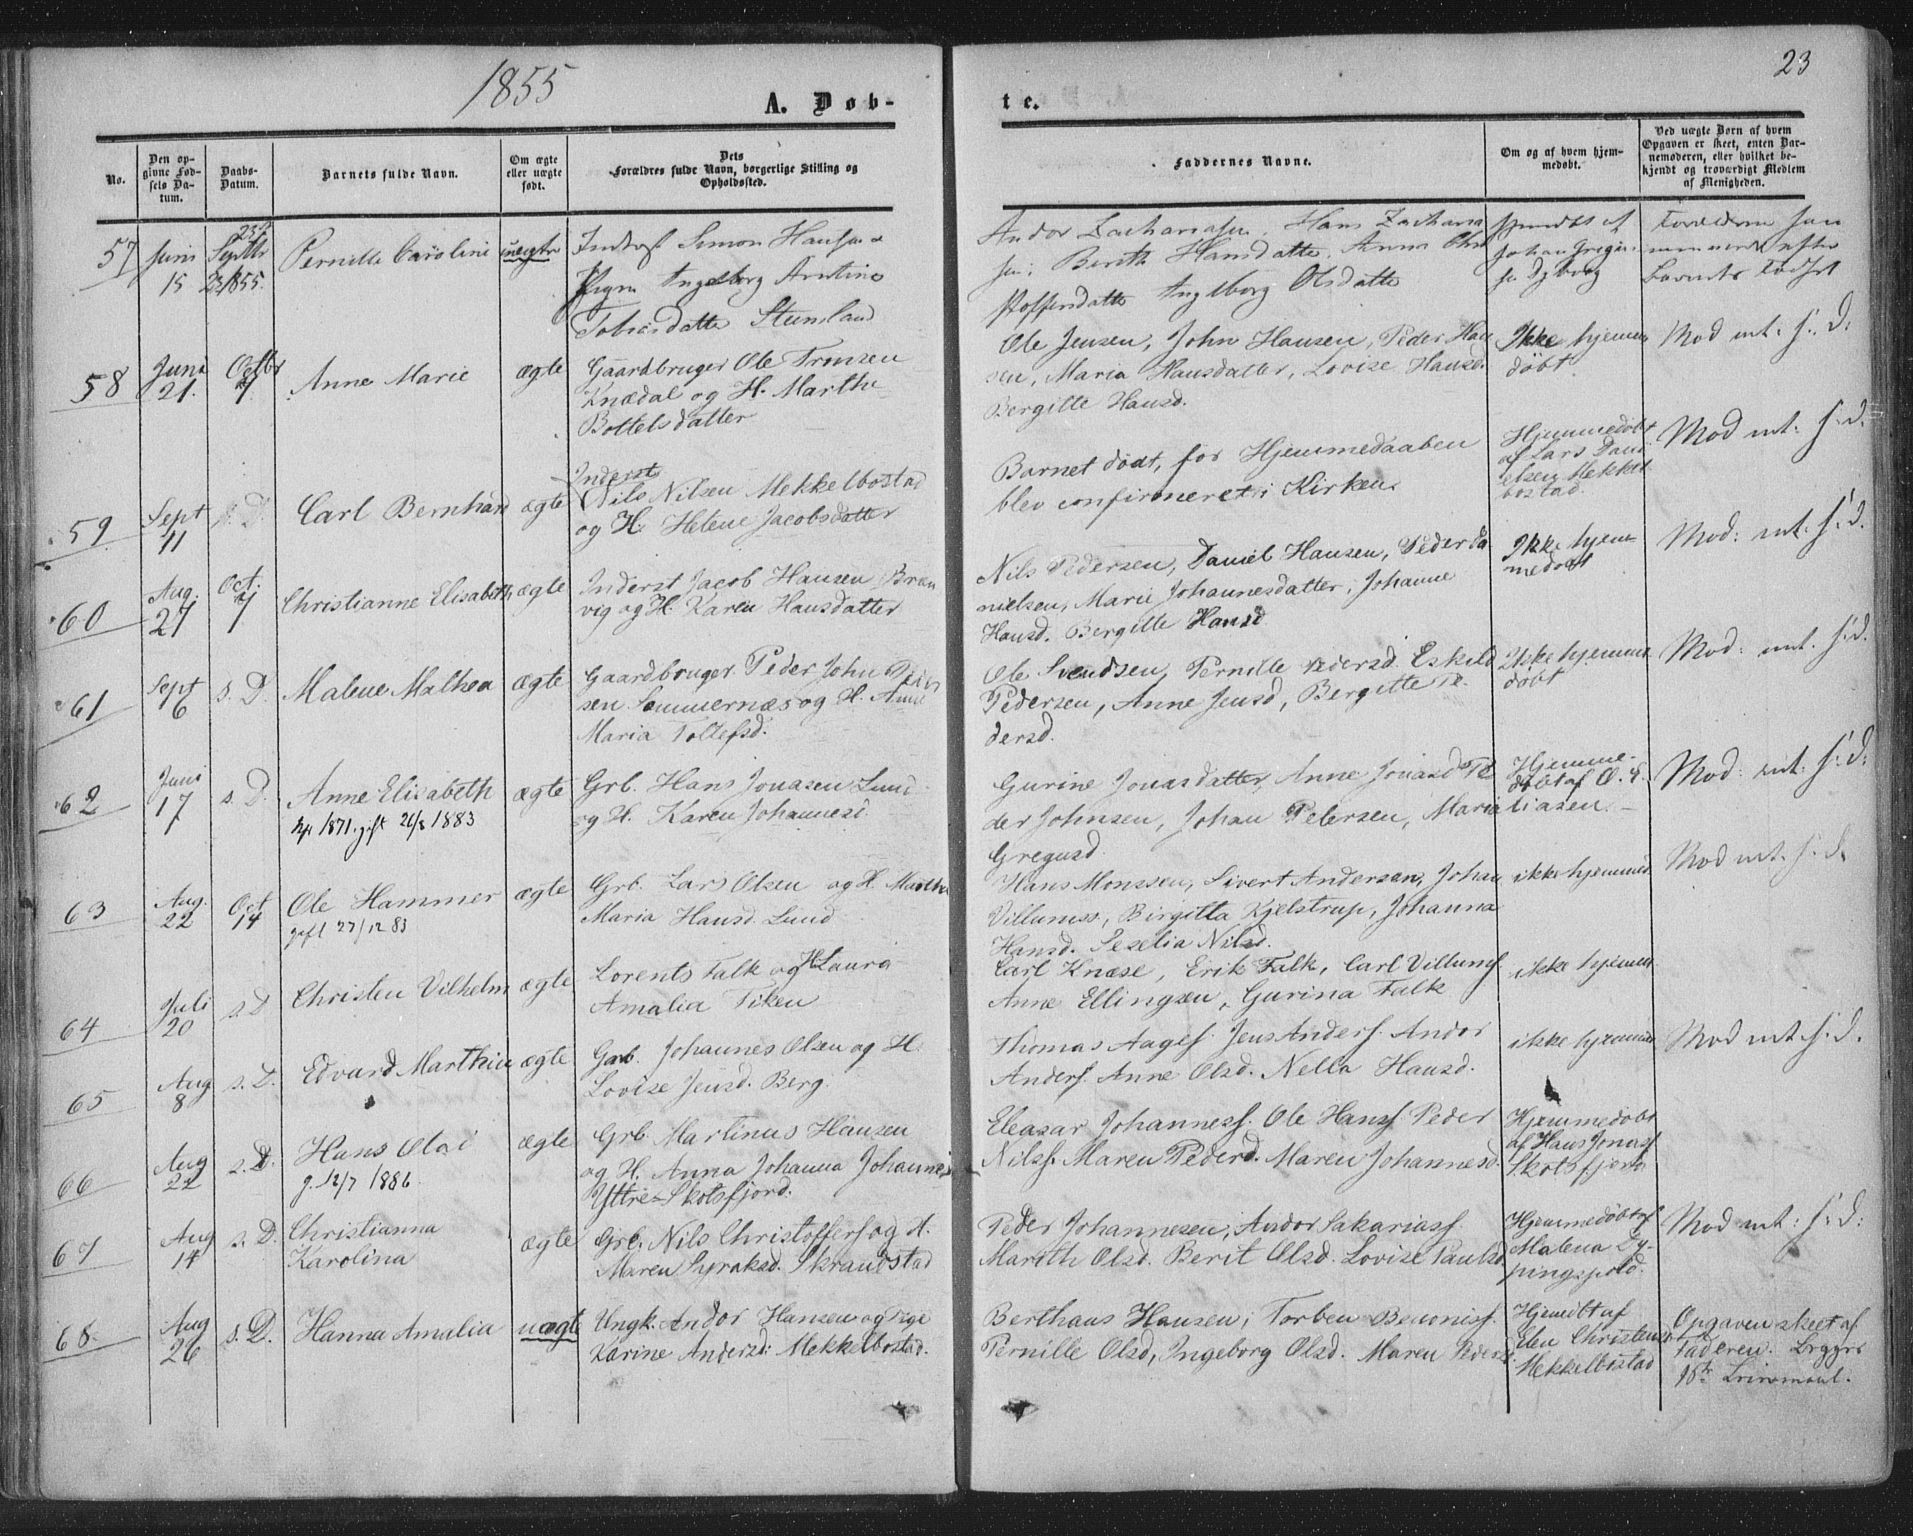 1855
A. Døb-
te.
23
No.
Den op-
givne Fød-
sels Da-
tum.
Daabs-
Datum.
Barnets fulde Navn.
Om ægte
eller uægte
født.
Dets
Forældres fulde Navn, borgerlige Stilling og
Opholdssted.
Faddernes Navne.
Om og af hvem hjem-
medøbt.
Ved uægte Børn af hvem
Opgaven er skeet, enten Bar-
nemoderen, eller hvilket be-
kjendt og troværdigt Medlem
af Menigheden.
57
Juni
15
Septbr
23 1855.
Pernille Caroline
uægte
Inderst Simon Hansen
Pigen Ingeborg Arntine
Tobiasdatter
Andor Zachariasen, Hans Zacharia
sen, Berith Hansdatter, Anne
Ingeborg Olsdatter
58
Juni
21.
Octbr
7
Anne Marie
ægte
Gaardbruger Ole Tronsen
Knædal og H. Marthe
Bottelsdatter
Ole Jensen, John Hansen, Peder Han
sen, Maria Hansdatter, Lovise Hansd.
Bergitte Hansd.
Ikke hjemme
døbt.
Mod mt: s: d:
59
Sept
11
s. D.
Carl Bernhard
ægte
Inderst
Nils Nilsen Mekkelbostad
og H. Helene Jacobsdatter
Barnet dødt, før Hjemmedaaben
blev confirmeret i Kirken.
Hjemmedøbt
af Lars Dani
elsen Mekkel
bostad.
Mod mt: s: d.
60
Aug.
27
Oct.
7
Christianne Elisabeth
ægte
Inderst Jacob Hansen Bræn
vig og H. Karen Hansdatter
Nils Pedersen, Daniel Hansen, Peder Da
nielsen, Marie Johannesdatter, Johanne
Hansd. Bergitte Hansd
Ikke hjem
medøbt
Mod: mt. s: d.
61
Sept
6
s. D.
Malene Malhea
ægte
Gaardbruger Peder John Peder
sen Sommernæs og H. Anne
Maria Tollefsd.
Ole Svendsen, Pernille Pedersd. Eskild
Pedersen, Anne Jensd, Bergitte Pe
dersd.
Ikke hjemme
døbt
Mod: mt. s: d.
62
Juni
17
s. D.
Anne Elisabeth
1871. gift 26/8 1883
ægte
Grb. Hans Jonasen Lund
og H. Karen Johannesd.
Gurine Jonasdatter, Anne Jonasd Pe
der Johnsen, Johan Petersen, Maria
Gregusd.
Hjemme-
døbt af O. E
liasen.
Mod: mt: s: d:
63
Aug.
22
Oct
14
Ole Hammer
gift 27/12 83
ægte
Grb. Lars Olsen og H. Marthe
Maria Hansd. Lund
Hans Monssen, Sivert Andersen, Johan
Villumss, Birgitta Kjelstrup, Johanna
Hansd. Seselia Nilsd.
ikke hjemmed
Mod mt. s. d.
64
Juli
20
s. D
Christen Vilhelm
ægte
Lorents Falk og H. Laura
Amalia Tiken
Carl Knæse, Erik Falk, Carl Villums.
Anne Ellingsen, Gurina Falk
ikke hjemm
65
Aug
8
s. D.
Edvard Marthin
ægte
Grb. Johannes Olsen og H.
Lovise Jensd. Berg.
Thomas Aages. Jens Anders. Andor
Anders. Anne Olsd. Nella Hansd.
ikke hjemme
Mod mt s: d.
66
Aug
22
s. D.
Hans Olai
g. 12/7 1886.
ægte
Grb Martinus Hansen
og H. Anna Johanna Johannesd
Yttre-Skotsfjord.
Eleasar Johanness. Ole Hanss. Peder
Nilss. Maren Pederd. Maren Johannesd.
Hjemmedøbt
af Hans Jonass
Skotsfjord
67
Aug
14
s. D.
Christianna
Karolina
ægte
Grb. Nils Christoffers og H.
Maren Syraksd. Skrandstad
Peder Johannesen, Andor Sakariass.
Marith Olsd. Berit Olsd. Lovise Paulsd
Hjemmedøbt af
Malena Ly-
pingspold.
Mod mt: s: d:
68
Aug
26
s. D.
Hanna Amalia
uægte
Ungk. Andor Hansen og Pige
Karine Andersd: Mekkelbostad.
Berthaus Hansen, Torben Benonis.
Pernille Olsd, Ingeborg Olsd. Maren Peders.
Hjemdbt af
Elen Christensd
Mekkelbostad
Opgaven skeet af
Faderen. Begges
1ste Leiermaal.